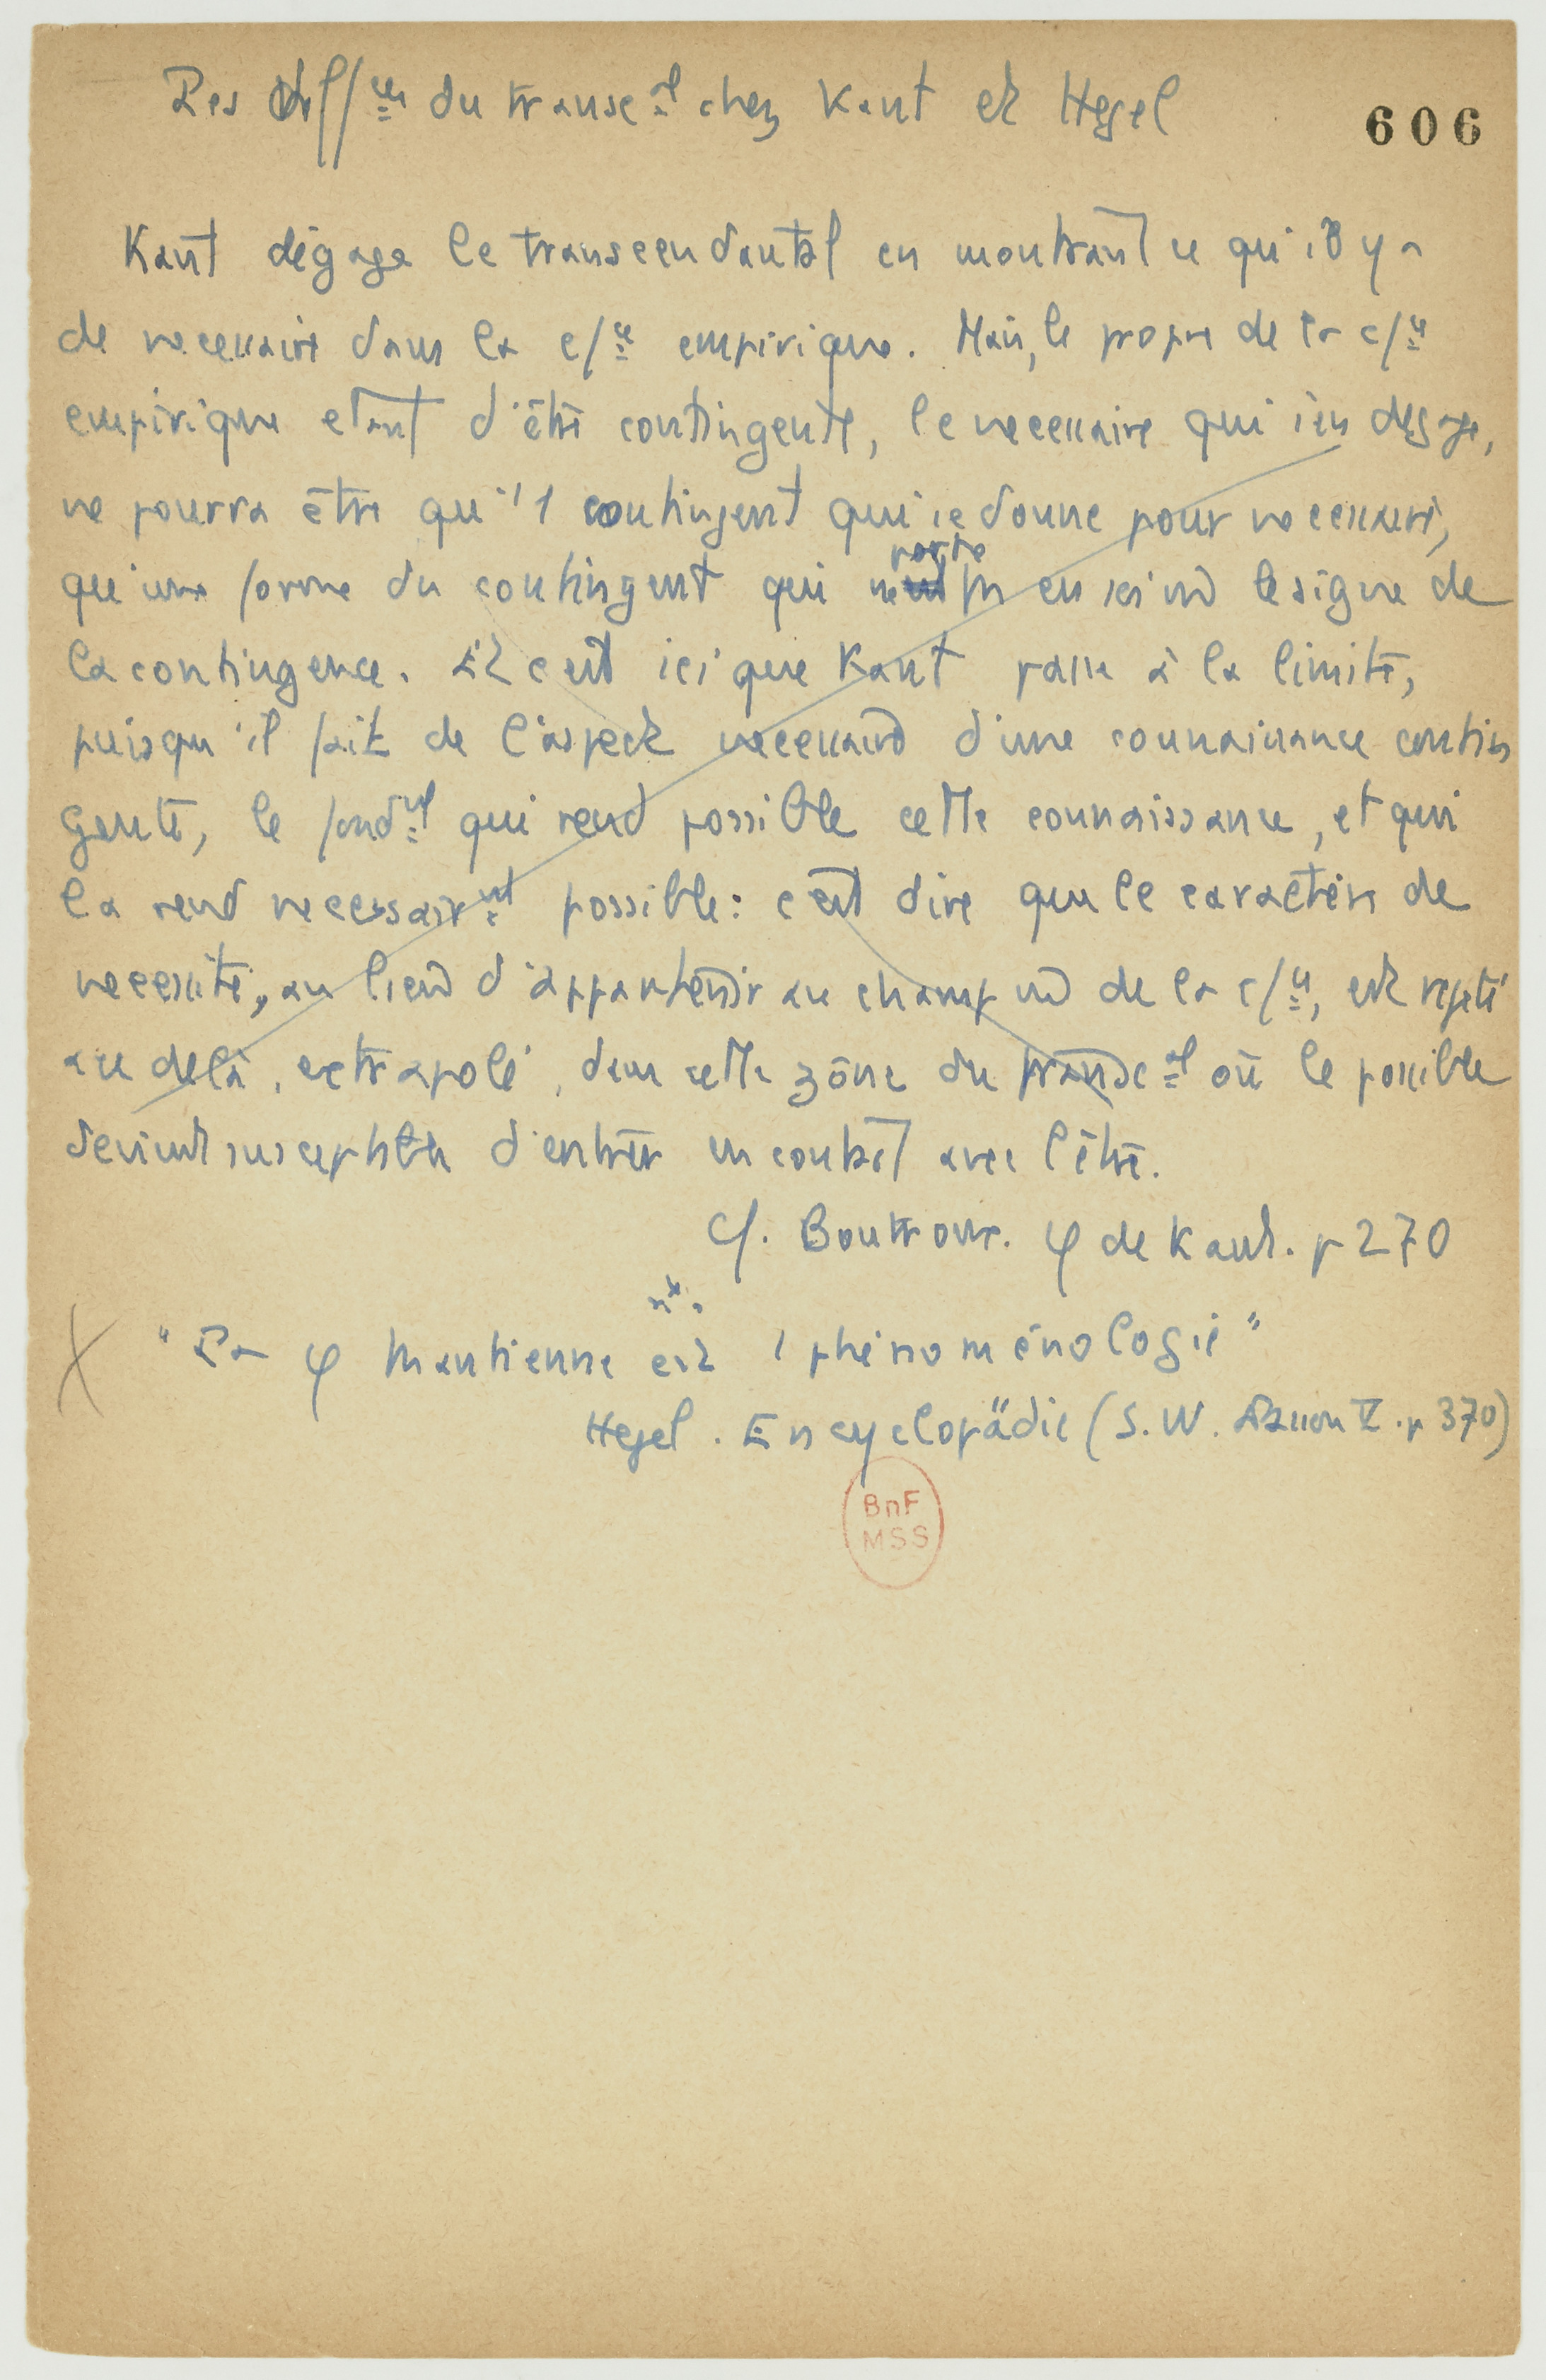 Les diff^ces du transc^al chez Kant et Hegel
606
Kant dégage le transcendantal en montrant ce qu'il y a
de necessaire dans la c/^ce empirique. Mais, le propre de la c/^ce
empirique etant d'être contingente, le necessaire qui s'en degage,
ne pourra être qu'1 contingent qui se donne pour necessaire,
qu'une forme du contingent qui ne porte pas en soi le signe de
la contingence. Et c'est ici que Kant passe à la limite,
puisqu'il fait de l'aspect necessaire d'une connaissance contin
gente, le fond^nt qui rend possible cette connaissance, et qui
la rend necessair^nt possible : c'est dire que le caractère de
necessité, au lieu d'appartenir au champ de la c/^ce, est rejeté
au delà, extrapolé, dans cette zône du transc^al où le possible
devient susceptible d'entrer en contact avec l'être.
Cf. Boutroux. φ de Kant. p 270
"La φ Kantienne est 1 phénoménologie"
Hegel. Encyclopädie (S.W. Lasson V. p 370)
BnF
MSS